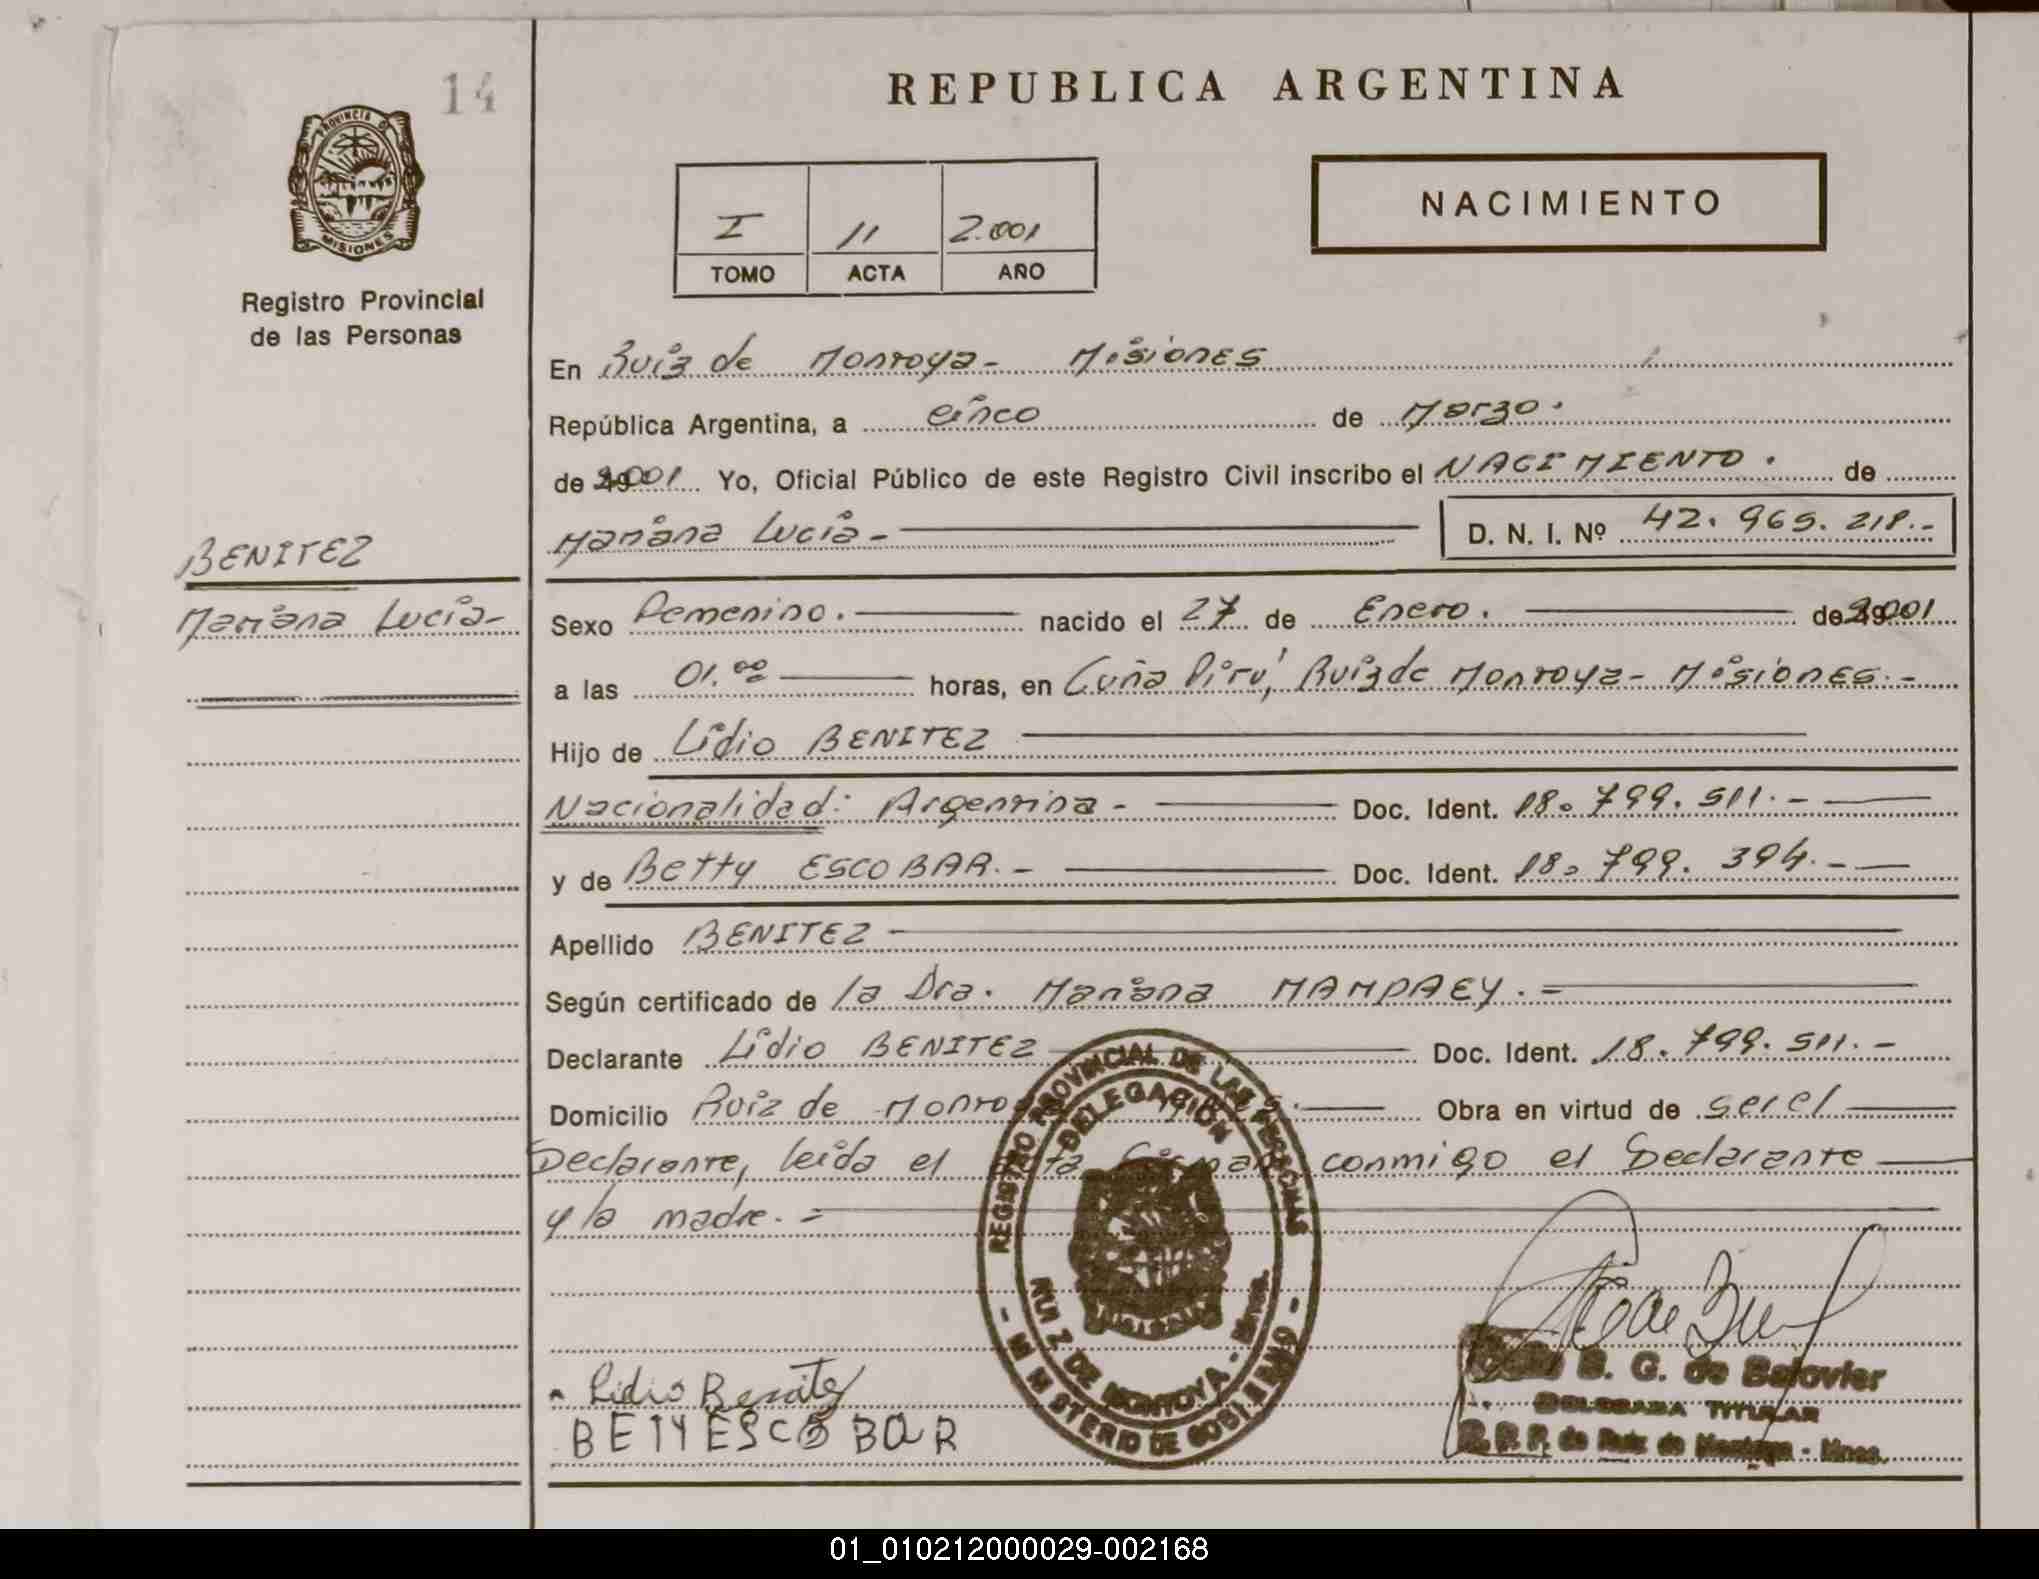 14
PROVINCIA DE
MISIONES
Registro Provincial
de las Personas
REPUBLICA ARGENTINA
NACIMIENTO
I 11 2.001
TOMO ACTA AÑO
En Ruiz de Montoya - Misiones
República Argentina, a cinco de Marzo.
de 2.001 Yo, Oficial Público de este Registro Civil inscribo el NACIMIENTO. de
Mariana Lucía - D. N. I. Nº 42. 965. 218.-
BENITEZ
Mariana Lucía-
Sexo Femenino. nacido el 27 de Enero. de 2.001
a las 01.00 horas, en Cuña Pirú, Ruiz de Montoya - Misiones.-
Hijo de Lidio BENITEZ
Nacionalidad: Argentina - Doc. Ident. 18. 799. 511.-
y de Betty ESCOBAR.- Doc. Ident. 18. 799. 394.-
Apellido BENITEZ
Según certificado de la Dra. Mariana MAMPAEY. =
Declarante Lidio BENITEZ Doc. Ident. 18. 799. 511.-
Domicilio Ruiz de Monto Obra en virtud de ser el
Declarante, leída el conmigo el Declarante
y la madre. =
REGISTRO PROVINCIAL DE LAS PERSONAS
DELEGACION
RUIZ DE MONTOYA -
- MINISTERIO DE GOBIERNO -
Lidio Benitez
BETTY ESCOBAR
B. G. de
DELEGADA TITULAR
R. P. P. de Ruiz de Montoya - Mnes.
01_010212000029-002168